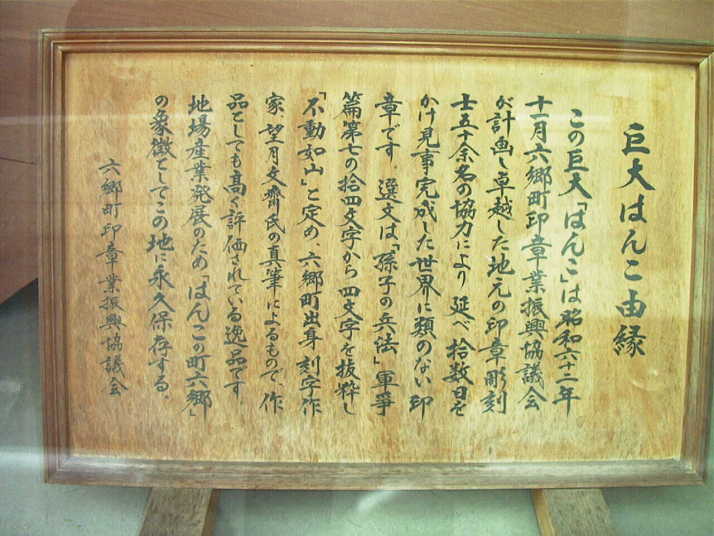 巨大はんこ由縁
この巨大「はんこ」は昭和六十二年
十一月六郷町印章業振興協議会
が計画し卓越した地元の印章彫刻
士五十余名の協力により延べ拾数日を
かけ見事完成した世界に類のない印
章です。選文は「孫子の兵法」軍爭
篇第七の拾四文字から四文字を抜粋し
「不動如山」と定め、六郷町出身刻字作
家、望月文齋氏の真筆によるもので、作
品としても高く評価されている逸品です。
地場産業発展のため「はんこの町六郷」
の象徴としてこの地に永久保存する。
六郷町印章業振興協議会